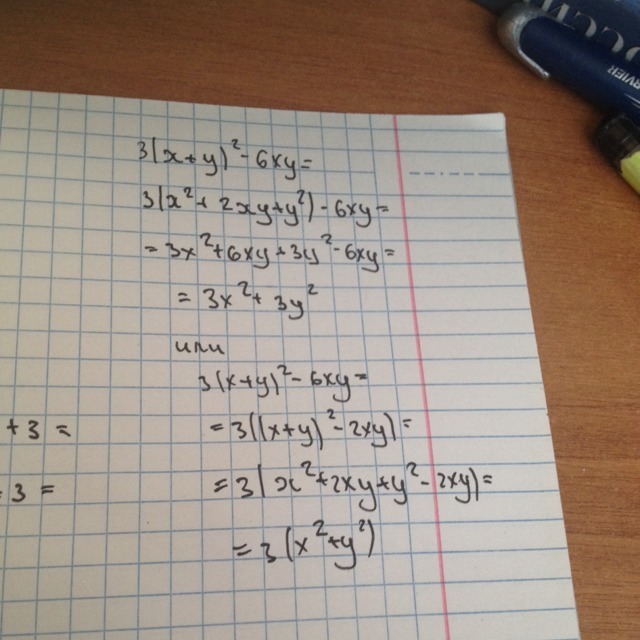 3(x+y)²-6xy=
3(x²+2xy+y²)-6xy=
=3x²+6xy+3y²-6xy=
=3x²+3y²
или
3(x+y)²-6xy=
+3=
=3((x+y)²-2xy)=
3=
=3(x²+2xy+y²-2xy)=
=3(x²+y²)